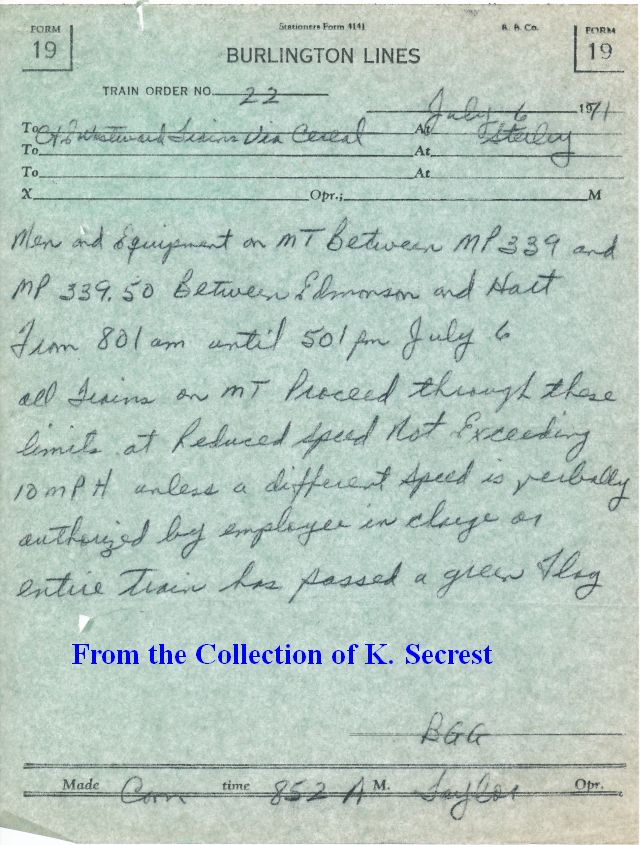 FORM 19
Stationers Form 4141
R. & Co.
FORM 19
BURLINGTON LINES
TRAIN ORDER NO. 22
July 6 1971
To C&E Westward Trains Via Cereal At Sterley
To At
To At
X Opr.; M
Men and Equipment on MT Between MP 339 and
MP 339.50 Between Edmonson and Hart
From 801 am until 501 pm July 6
all Trains on MT Proceed through these
limits at Reduced Speed Not Exceeding
10 MPH unless a different speed is verbally
authorized by employee in charge or
entire train has passed a green Flag
From the Collection of K. Secrest
BGG
Made Com time 852 A M. Taylor Opr.